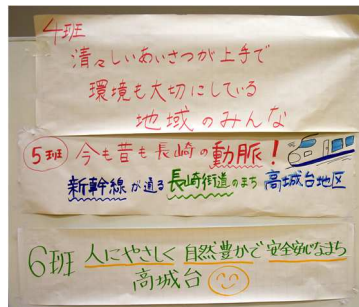 4班
清々しいあいさつが上手で
環境も大切にしている
地域のみんな
5班 今も昔も長崎の動脈!
新幹線が通る長崎街道のまち 高城台地区
6班 人にやさしく 自然豊かで 安全安心なまち
高城台